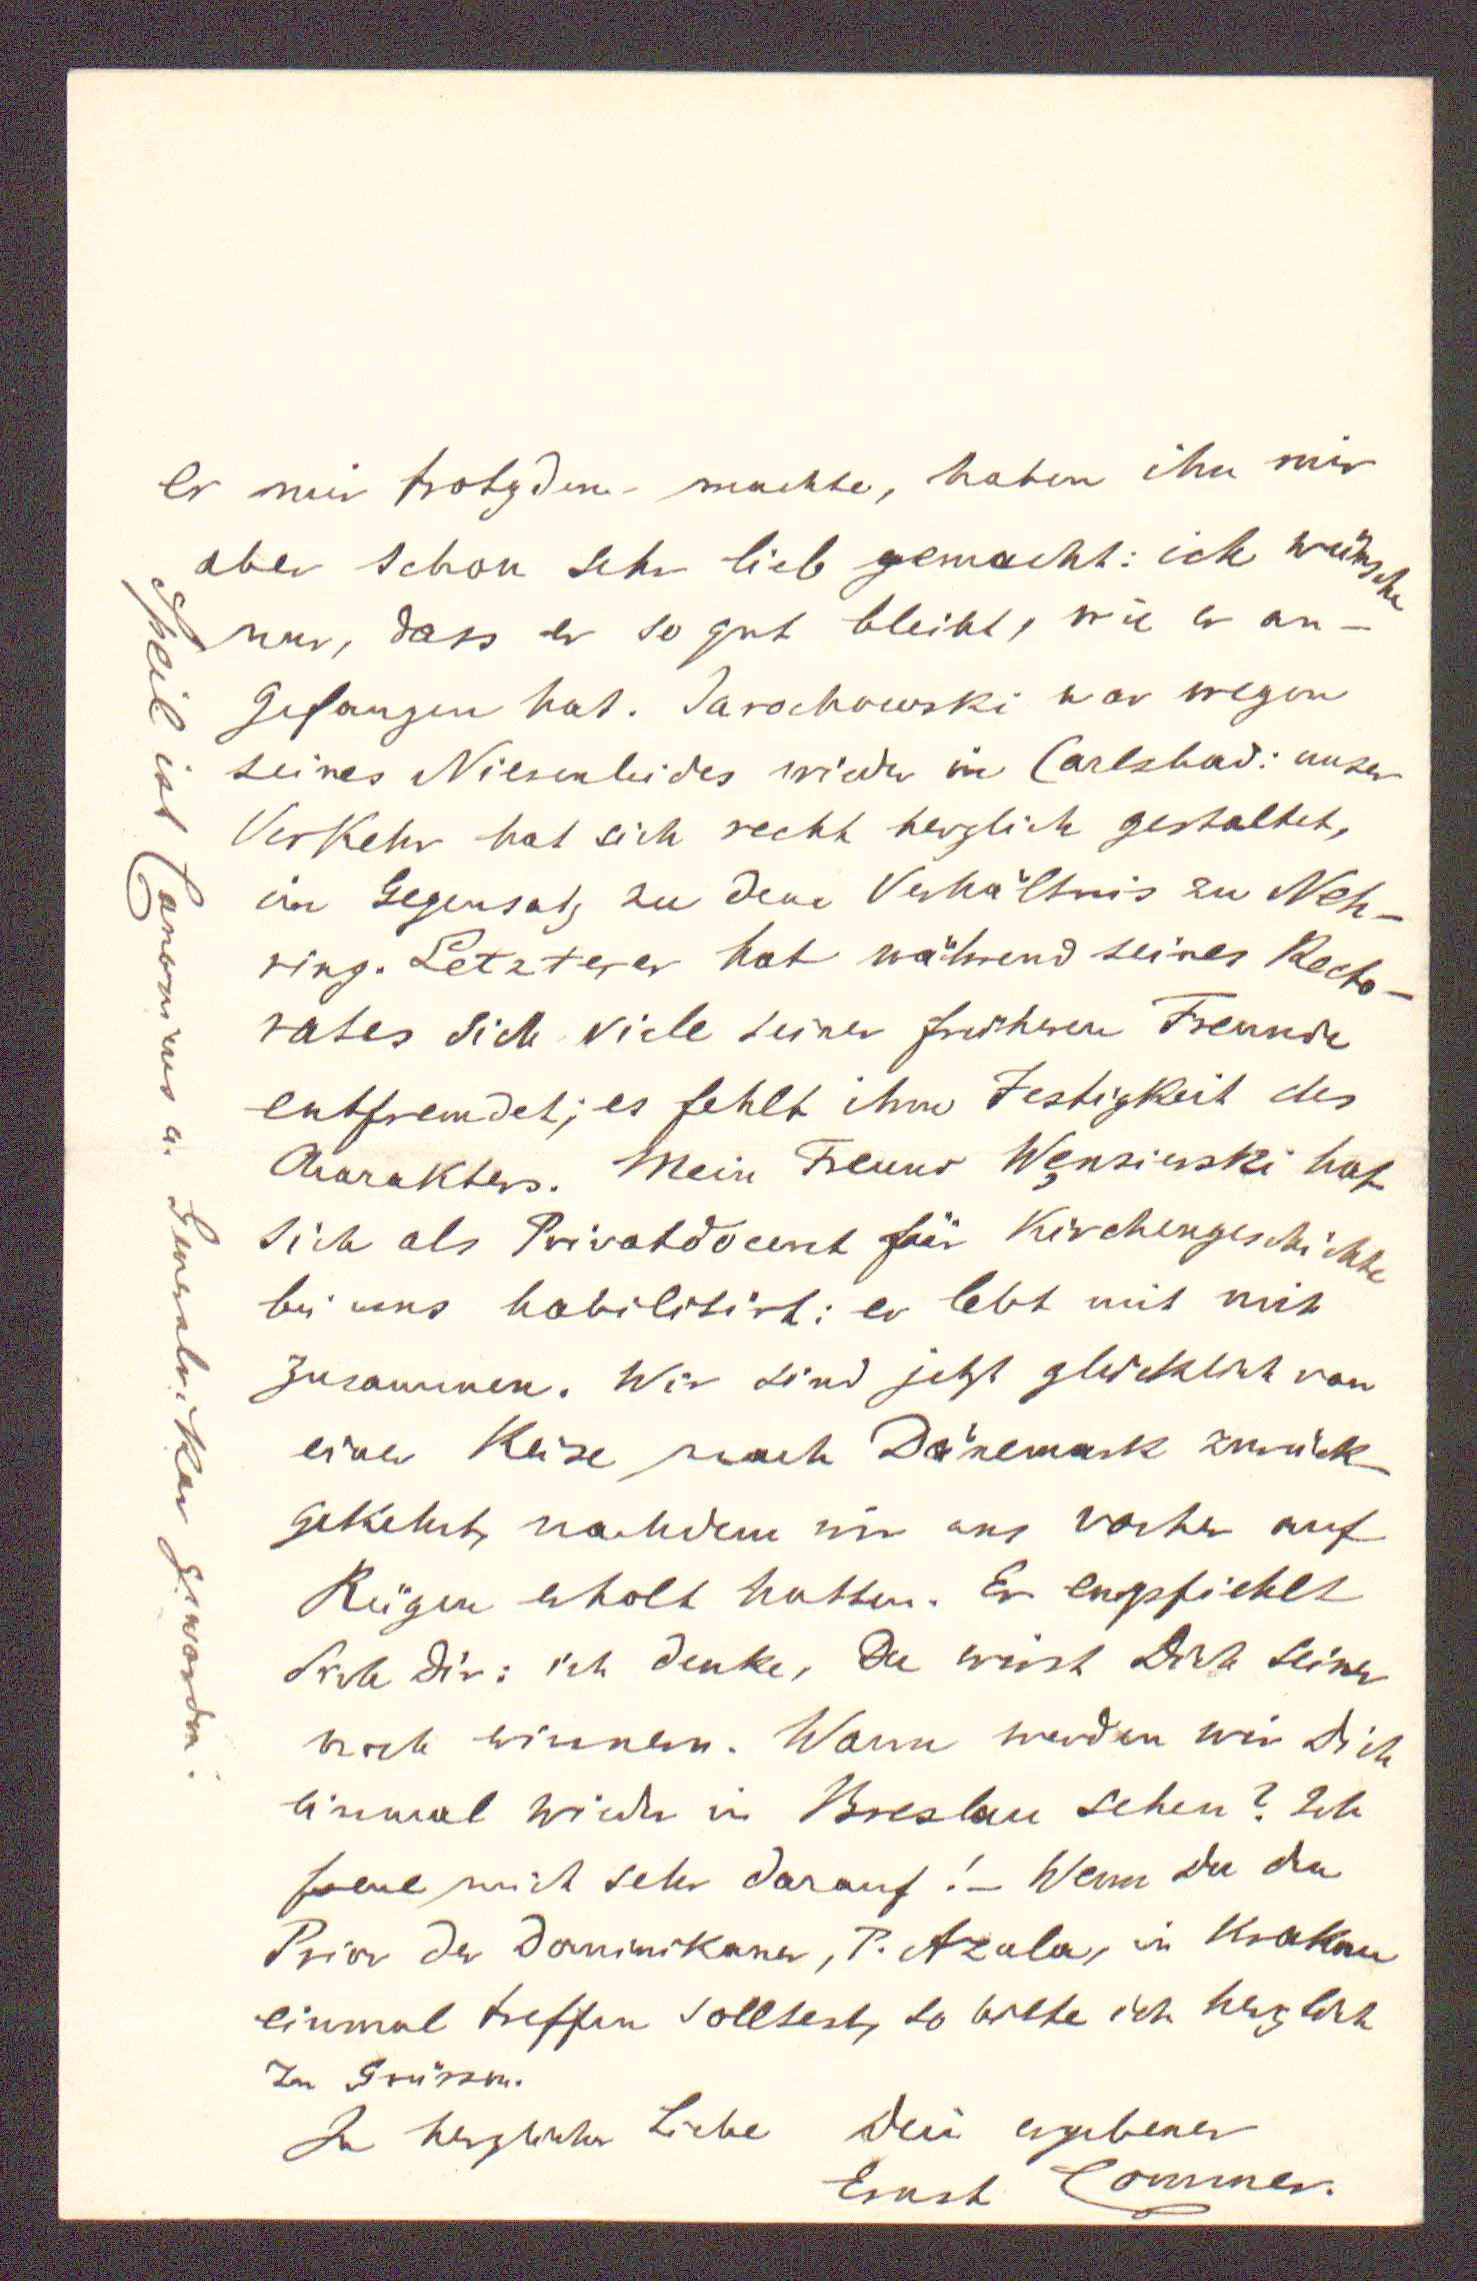 er mir trotzdem machte, haben ihn mir
aber schon sehr lieb gemacht: ich wünsche
nur, dass er so gut bleibt, wie er an-
gefangen hat. Jarochowski war wegen
seines Nierenleides wieder in Carlsbad: unser
Verkehr hat sich recht herzlich gestaltet,
im Gegensatz zu dem Verhältnis zu Neh-
ring. Letzterer hat während seines Recto-
rates sich viele seiner früheren Freunde
entfremdet; es fehlt ihm Festigkeit des
Charakters. Mein Freund Wensierski hat
sich als Privatdocent für Kirchengeschichte
bei uns habilitirt: er lebt mit mir
zusammen. Wir sind jetzt glücklich von
einer Reise nach Dänemark zurück
gekehrt, nachdem wir uns vorher auf
Rügen erholt hatten. Er empfiehlt
sich Dir: ich denke, Du wirst Dich seiner
noch erinnern. Wann werden wir Dich
einmal wieder in Breslau sehen? Ich
freue mich sehr darauf! – Wenn Du den
Prior der Dominikaner, P. Azala, in Krakau
einmal treffen solltest, so bitte ich herzlich
zu Grüssen.
In herzlicher Liebe Dein ergebener
Ernst Commer.
Speil ist Canonicus u. Generalvikar geworden.